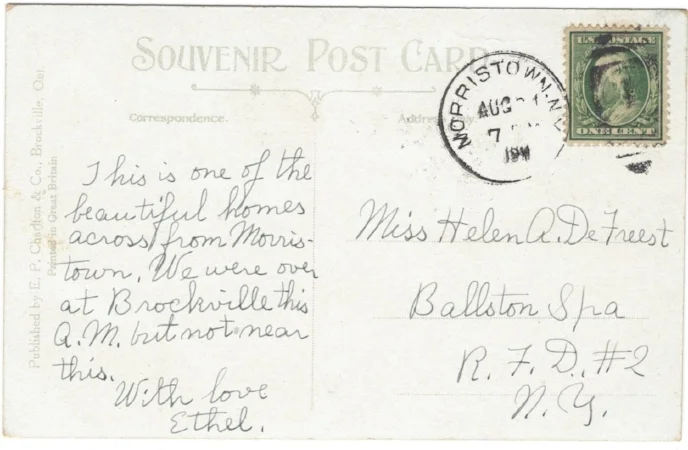 SOUVENIR POST CARD
Correspondence.
Published by E. P. Charlton & Co., Brockville, Ont.
Printed in Great Britain
This is one of the
beautiful homes
across from Morris-
town. We were over
at Brockville this
A.M. but not near
this.
With love
Ethel.
MORRISTOWN. N.
AUG
7
U.S. POSTAGE
ONE CENT
Miss Helen A. DeFreest
Ballston Spa
R. F. D. #2
N. Y.